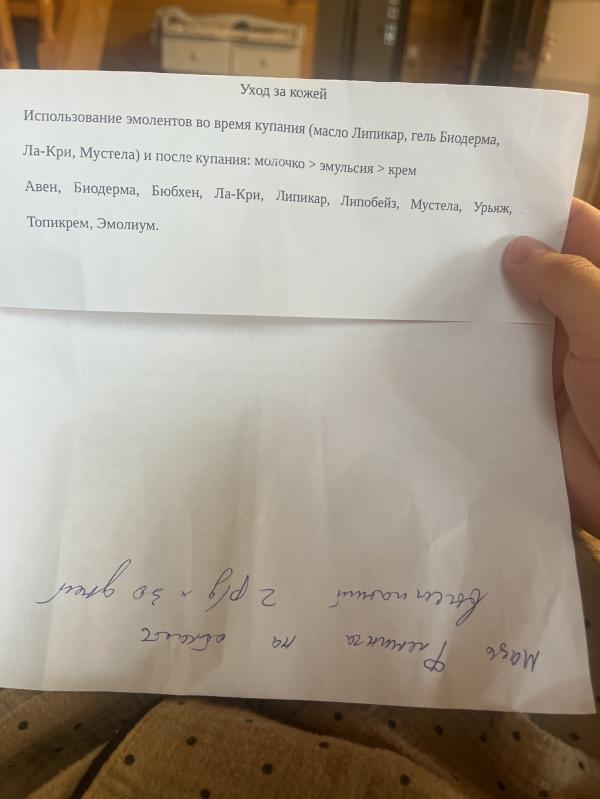 Уход за кожей
Использование эмолентов во время купания (масло Липикар, гель Биодерма,
Ла-Кри, Мустела) и после купания: молочко > эмульсия > крем
Авен, Биодерма, Бюбхен, Ла-Кри, Липикар, Липобейз, Мустела, Урьяж,
Топикрем, Эмолиум.
Мазь Флеминга на область
высыпаний 2 р/д × 30 дней